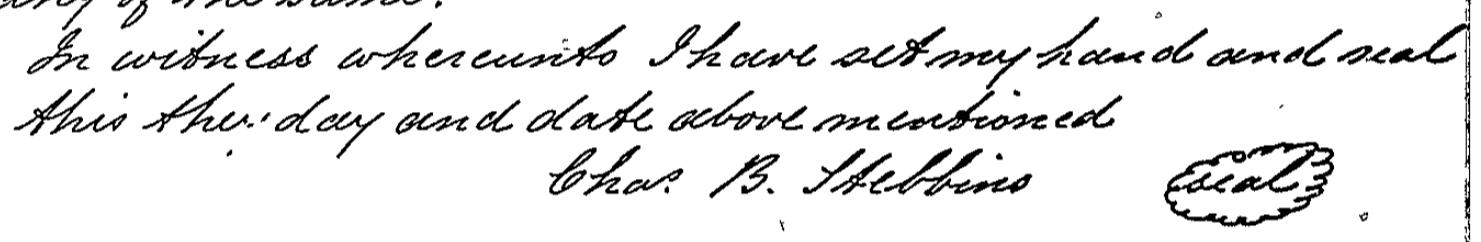 any of the same.
In witness whereunto I have set my hand and seal
this the day and date above mentioned
Chas. B. Stebbins seal